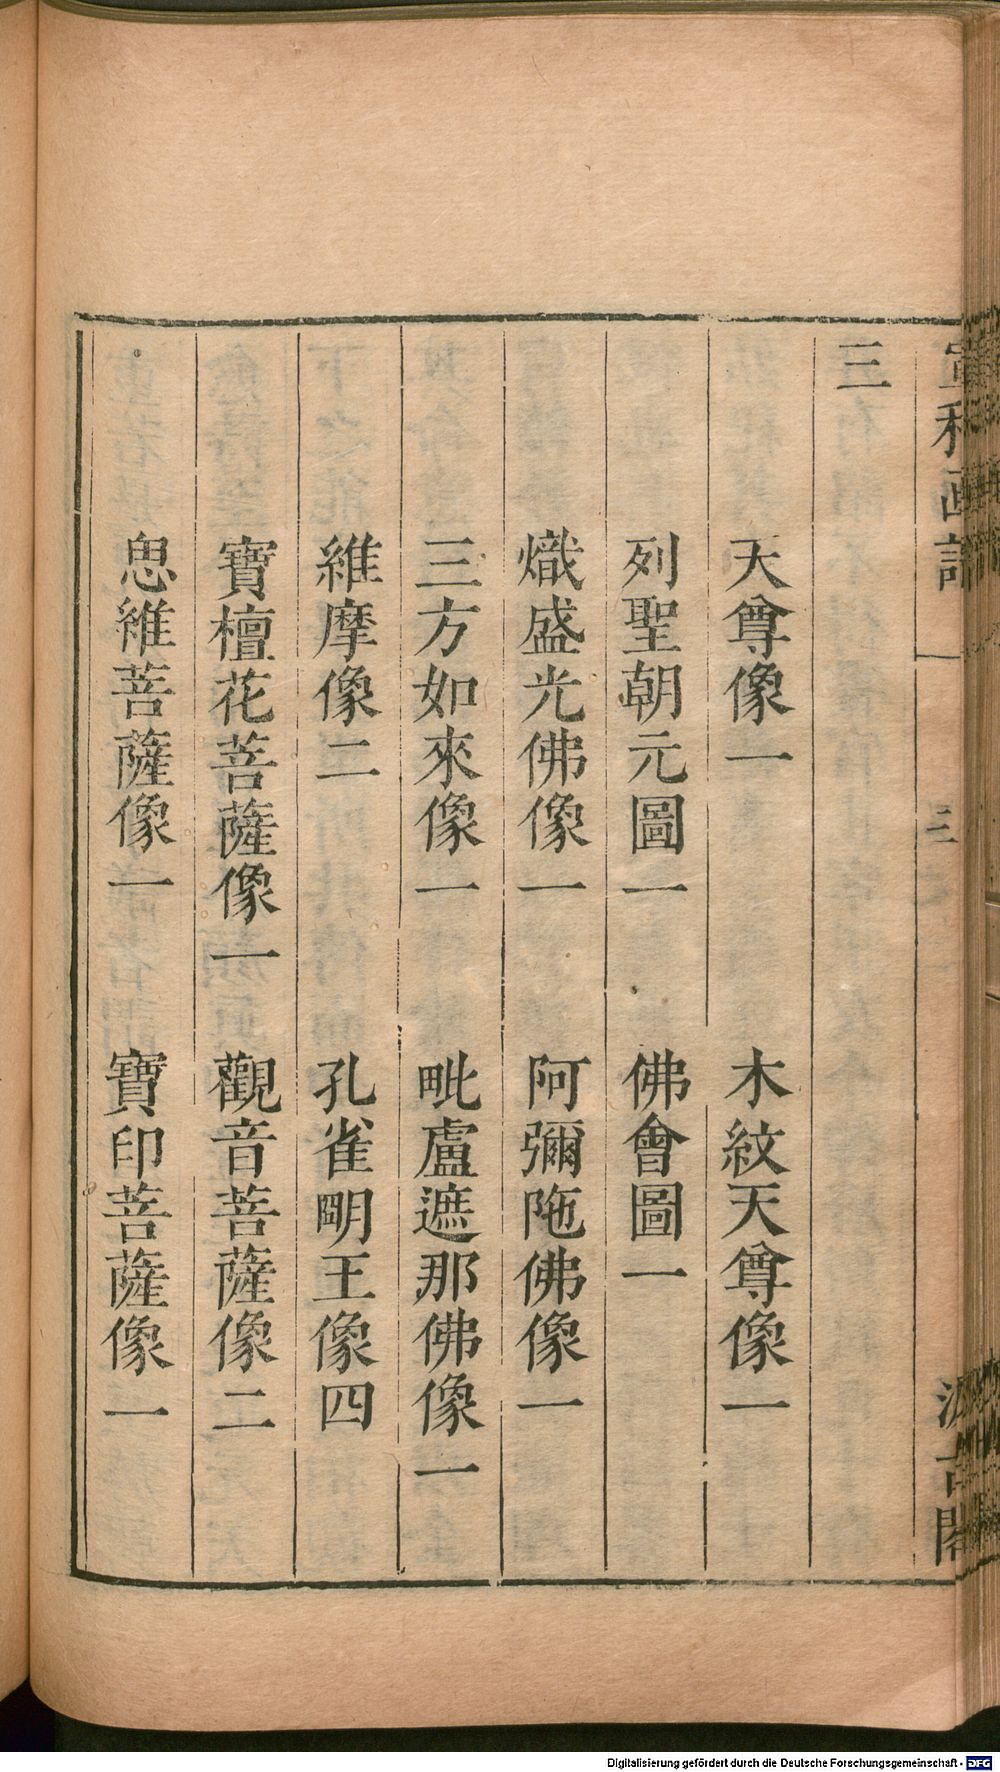 三
天尊像一　木紋天尊像一
列聖朝元圖一　佛會圖一
熾盛光佛像一　阿彌陁佛像一
三方如來像一　毗盧遮那佛像一
維摩像二　孔雀明王像四
寶檀花菩薩像一　觀音菩薩像二
思維菩薩像一　寶印菩薩像一
Digitalisierung gefördert durch die Deutsche Forschungsgemeinschaft - DFG